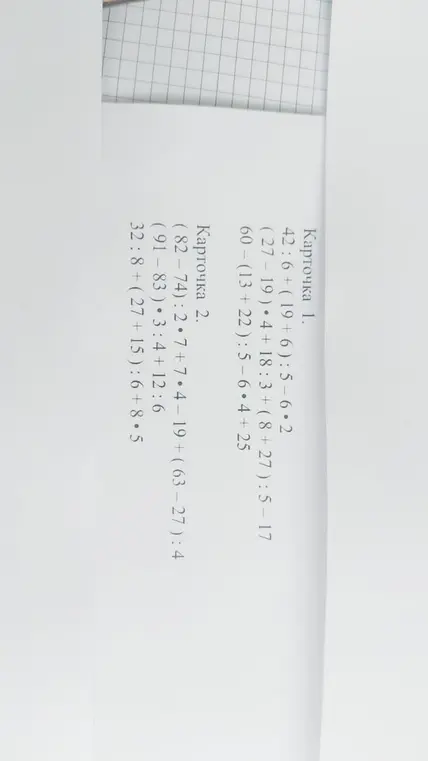 Карточка 1.
42 : 6 + ( 19 + 6 ) : 5 – 6 • 2
( 27 – 19 ) • 4 + 18 : 3 + ( 8 + 27 ) : 5 – 17
60 – (13 + 22 ) : 5 – 6 • 4 + 25
Карточка 2.
( 82 – 74) : 2 • 7 + 7 • 4 – 19 + ( 63 – 27 ) : 4
( 91 – 83 ) • 3 : 4 + 12 : 6
32 : 8 + ( 27 + 15 ) : 6 + 8 • 5